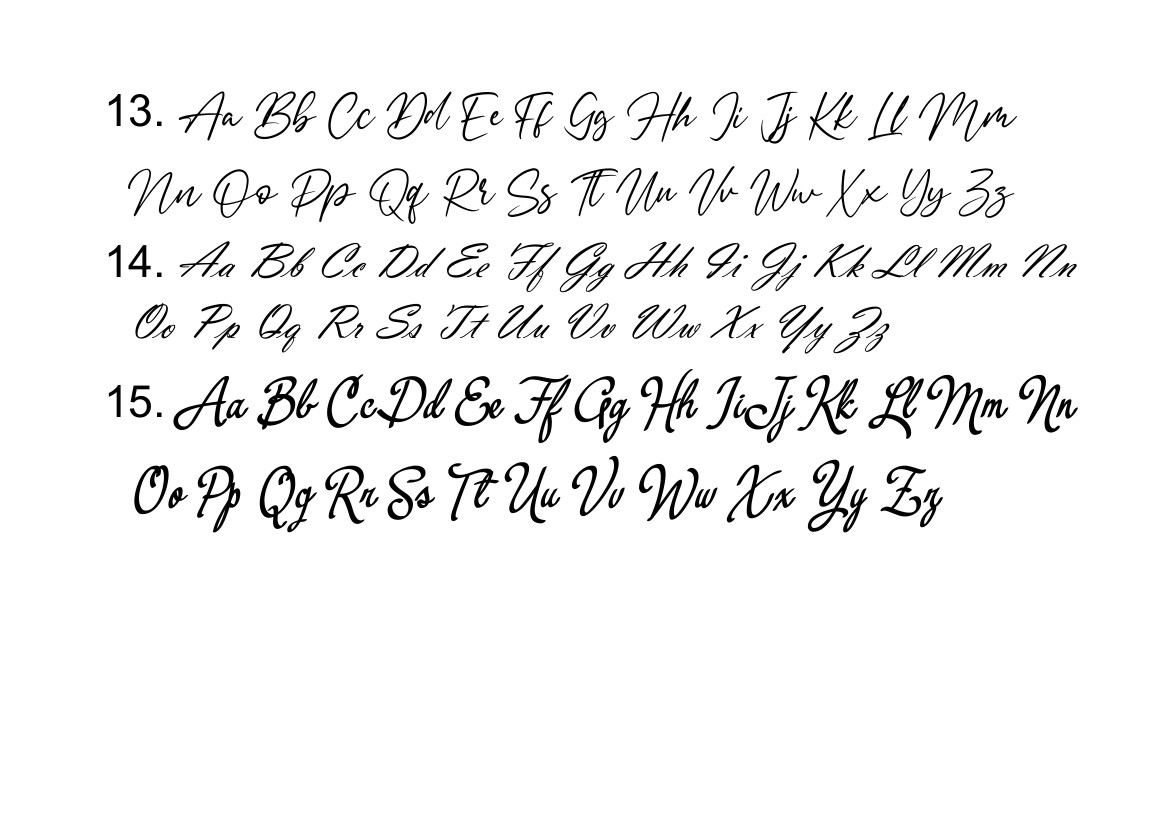 13. Aa Bb Cc Dd Ee Ff Gg Hh Ii Jj Kk Ll Mm
Nn Oo Pp Qq Rr Ss Tt Uu Vv Ww Xx Yy Zz
14. Aa Bb Cc Dd Ee Ff Gg Hh Ii Jj Kk Ll Mm Nn
Oo Pp Qq Rr Ss Tt Uu Vv Ww Xx Yy Zz
15. Aa Bb Cc Dd Ee Ff Gg Hh Ii Jj Kk Ll Mm Nn
Oo Pp Qq Rr Ss Tt Uu Vv Ww Xx Yy Zz